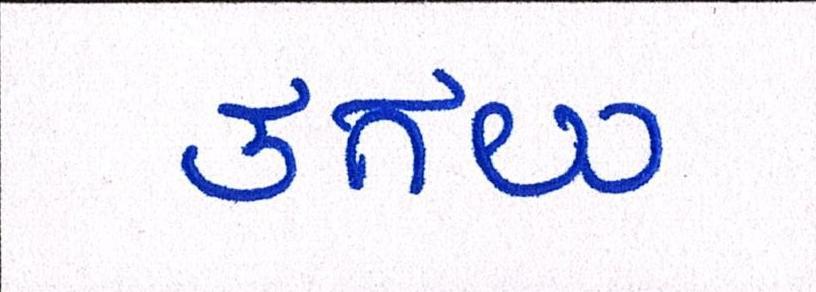 ತಗಲ